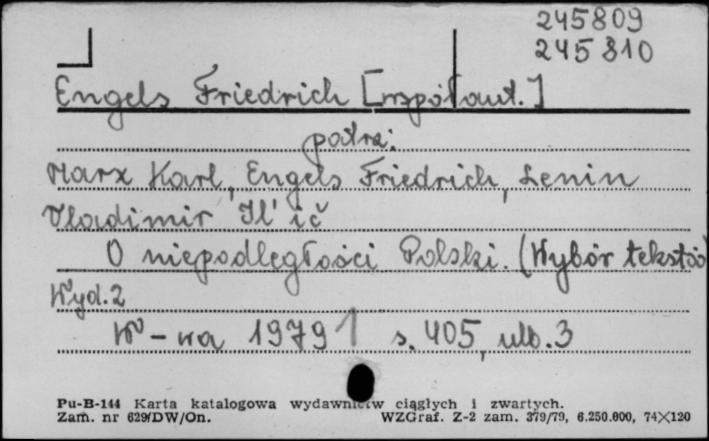 245809
245810
Engels Friedrich [współaut.]
patrz:
Marx Karl, Engels Friedrich, Lenin
Vladimir Il'ič
O niepodległości Polski. (Wybór tekstów
Wyd. 2
W-wa 1979 s. 405, nlb. 3
Pu-B-144 Karta katalogowa wydawnictw ciągłych i zwartych.
Zam. nr 629/DW/On. WZGraf. Z-2 zam. 379/79, 6.250.000, 74×120